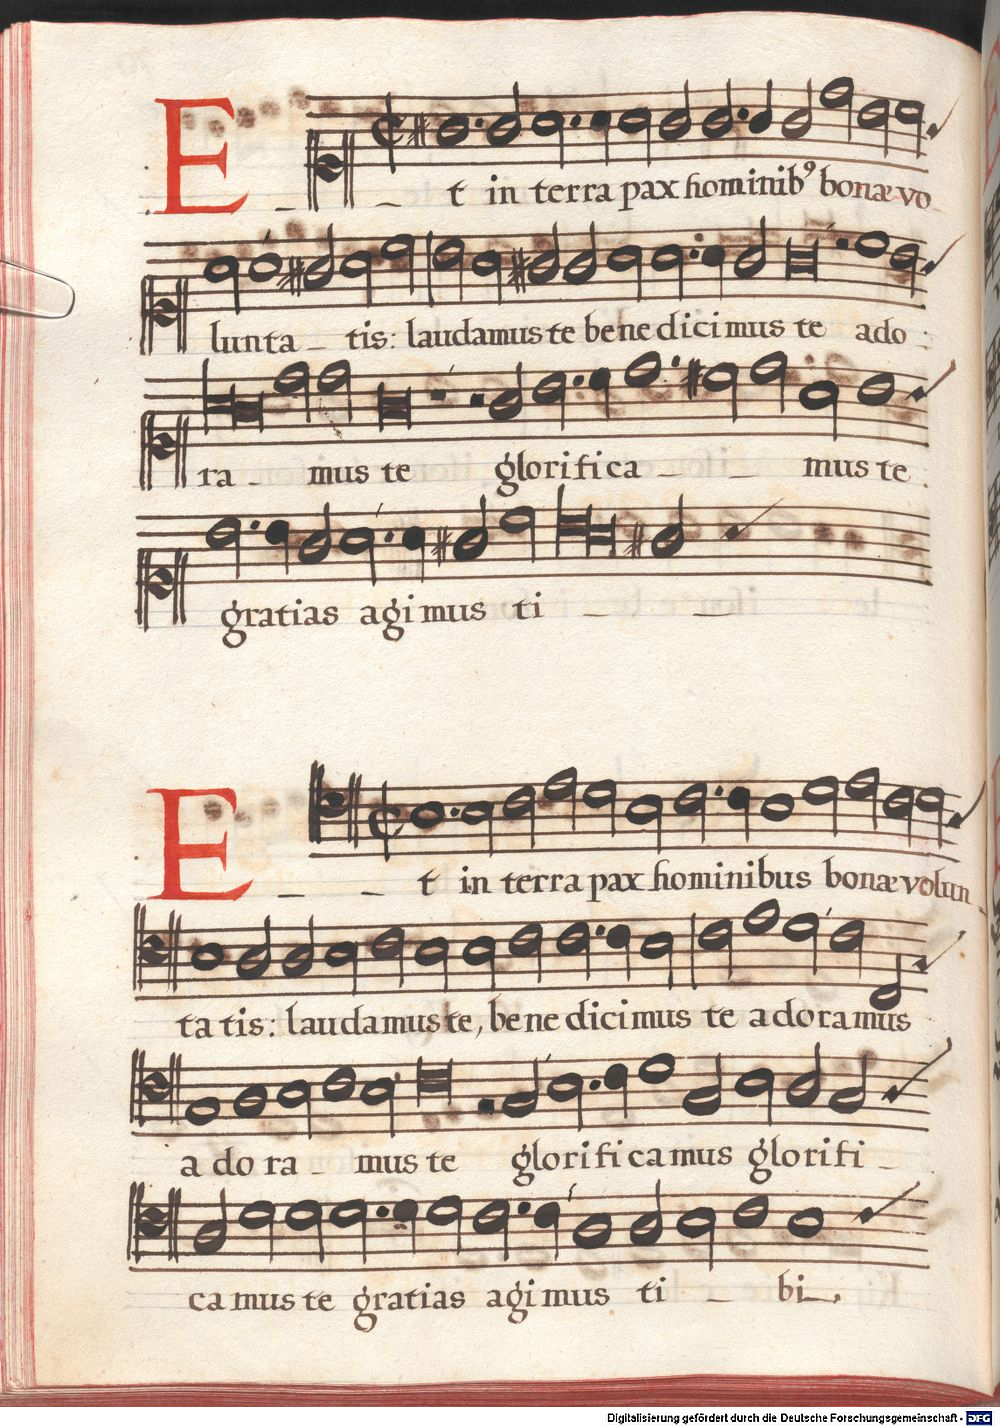 E_ _ t in terra pax hominib⁹ bonæ vo
lunta_ tis: laudamus te benedicimus te ado
ra_ mus te glorifica_ _ mus te
gratias agimus ti_ _
E_ _ t in terra pax hominibus bonæ volun_
ta tis: laudamus te, benedicimus te adoramus
adora_ mus te glorificamus glorifi_
camus te gratias agimus ti_ bi_.
Digitalisierung gefördert durch die Deutsche Forschungsgemeinschaft - DFG